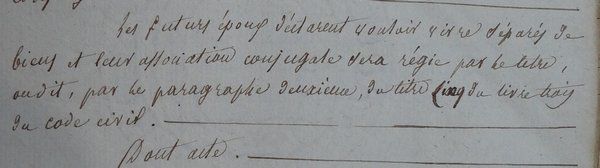 Les futurs époux déclarent vouloir vivre séparés de
biens et leur association conjugale sera régie par le titre,
ou dit, par le paragraphe deuxieme, du titre cinq du livre trois
du code civil.
Dont acte.